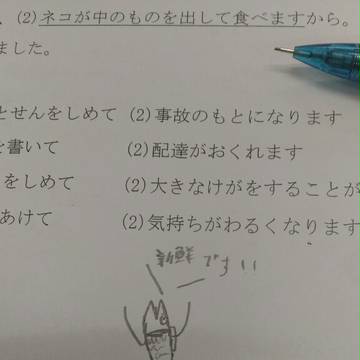 、(2)ネコが中のものを出して食べますから。
ました。
とせんをしめて (2)事故のもとになります
を書いて (2)配達がおくれます
をしめて (2)大きなけがをすることが
あけて (2)気持ちがわるくなります
新鮮です!!